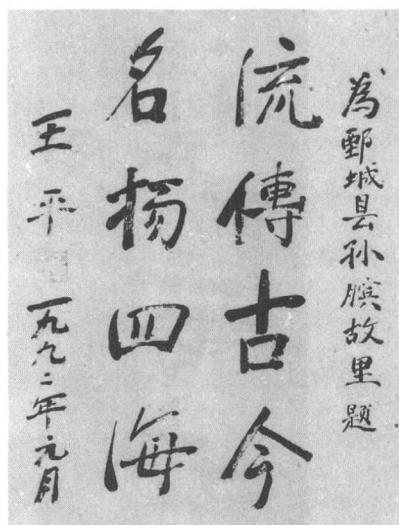 為鄄城县孙膑故里题
流傳古今
名揚四海
王平 一九九二年元月